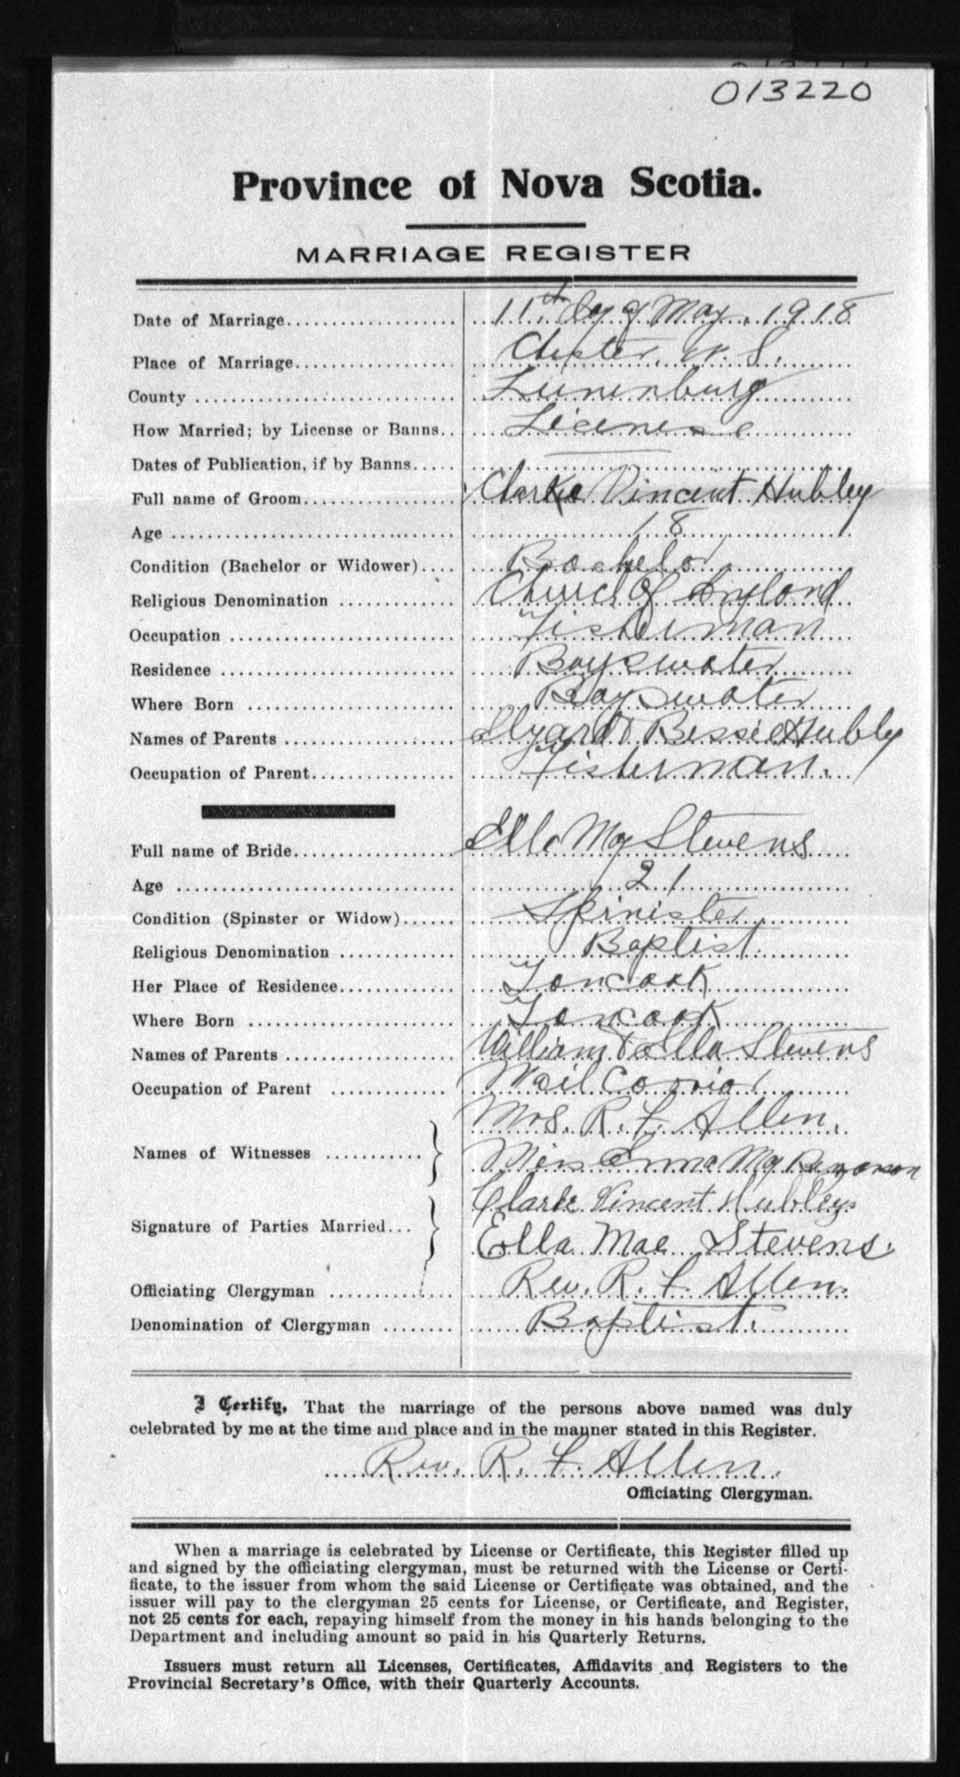 013220
Province of Nova Scotia.
MARRIAGE REGISTER
Date of Marriage 11th Day of May, 1918
Place of Marriage Chester, N. S.
County Lunenburg
How Married; by License or Banns License
Dates of Publication, if by Banns
Full name of Groom Clarke Vincent Hubley
Age 18
Condition (Bachelor or Widower) Bachelor
Religious Denomination Church of England
Occupation Fisherman
Residence Bayswater
Where Born Bayswater
Names of Parents & Bessie Hubley
Occupation of Parent Fisherman.
Full name of Bride Ella May Stevens
Age 21
Condition (Spinster or Widow) Spinister
Religious Denomination Baptist
Her Place of Residence Tancook
Where Born Tancook
Names of Parents William & Ella Stevens
Occupation of Parent Mail Carrier
Names of Witnesses Mrs. R. F. Allen.
Miss May
Signature of Parties Married Clarke Vincent Hubley
Ella Mae Stevens.
Officiating Clergyman Rev. R. F. Allen.
Denomination of Clergyman Baptist.
I Certify, That the marriage of the persons above named was duly
celebrated by me at the time and place and in the manner stated in this Register.
Rev. R. F. Allen.
Officiating Clergyman.
When a marriage is celebrated by License or Certificate, this Register filled up
and signed by the officiating clergyman, must be returned with the License or Certi-
ficate, to the issuer from whom the said License or Certificate was obtained, and the
issuer will pay to the clergyman 25 cents for License, or Certificate, and Register,
not 25 cents for each, repaying himself from the money in his hands belonging to the
Department and including amount so paid in his Quarterly Returns.
Issuers must return all Licenses, Certificates, Affidavits and Registers to the
Provincial Secretary's Office, with their Quarterly Accounts.